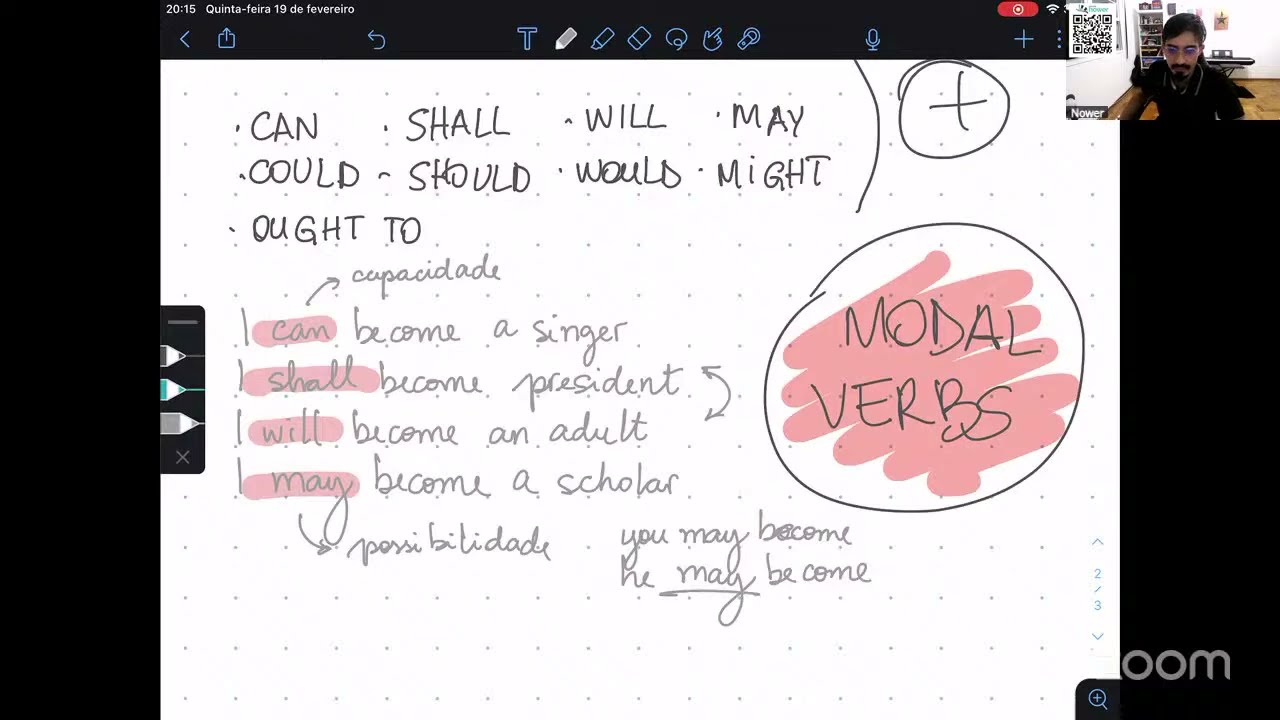 20:15 Quinta-feira 19 de fevereiro
nower
Nower
· CAN · SHALL · WILL · MAY
· COULD - SHOULD · WOULD · MIGHT
· OUGHT TO
+
capacidade
I can become a singer
I shall become president
I will become an adult
I may become a scholar
possibilidade
you may become
he may become
MODAL
VERBS
2
/
3
oom